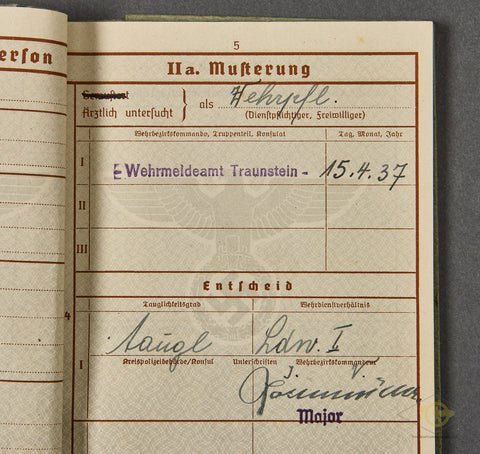 erson
5
IIa. Musterung
Gemustert
Ärztlich untersucht } als Wehrpfl.
(Dienstpflichtiger, Freiwilliger)
Wehrbezirkskommando, Truppenteil, Konsulat Tag, Monat, Jahr
I Wehrmeldeamt Traunstein - 15.4.37
II
III
Entscheid
Tauglichkeitsgrad Wehrdienstverhältnis
4
taugl Ldw. I
I Kreispolizeibehörde/Konsul Unterschriften Wehrbezirkskommandeur
J. V.
Major